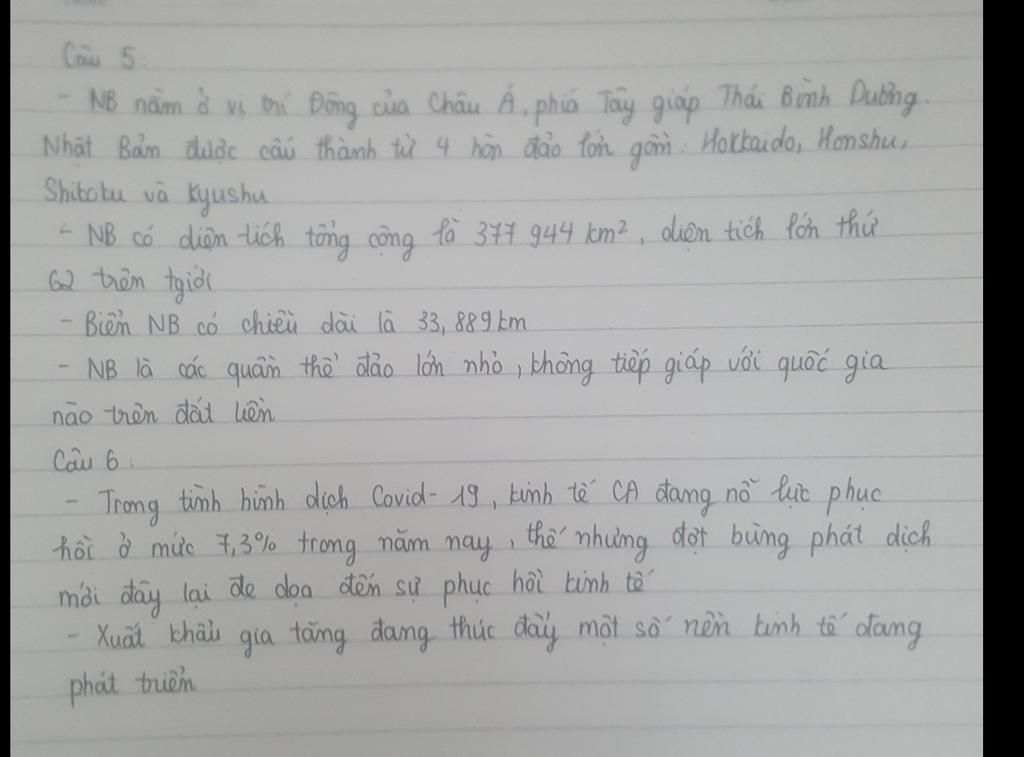 Câu 5:
- NB nằm ở vị trí Đông của Châu Á, phía Tây giáp Thái Bình Dương.
Nhật Bản được cấu thành từ 4 hòn đảo lớn gồm: Hokkaido, Honshu,
Shikoku và Kyushu
- NB có diện tích tổng cộng là 377 944 km², diện tích lớn thứ
62 trên tgiới
- Biển NB có chiều dài là 33,889 km
- NB là các quần thể đảo lớn nhỏ, không tiếp giáp với quốc gia
nào trên đất liền
Câu 6:
- Trong tình hình dịch Covid-19, kinh tế CA đang nỗ lực phục
hồi ở mức 7,3% trong năm nay, thế nhưng đợt bùng phát dịch
mới đây lại đe dọa đến sự phục hồi kinh tế
- Xuất khẩu gia tăng đang thúc đẩy một số nền kinh tế đang
phát triển